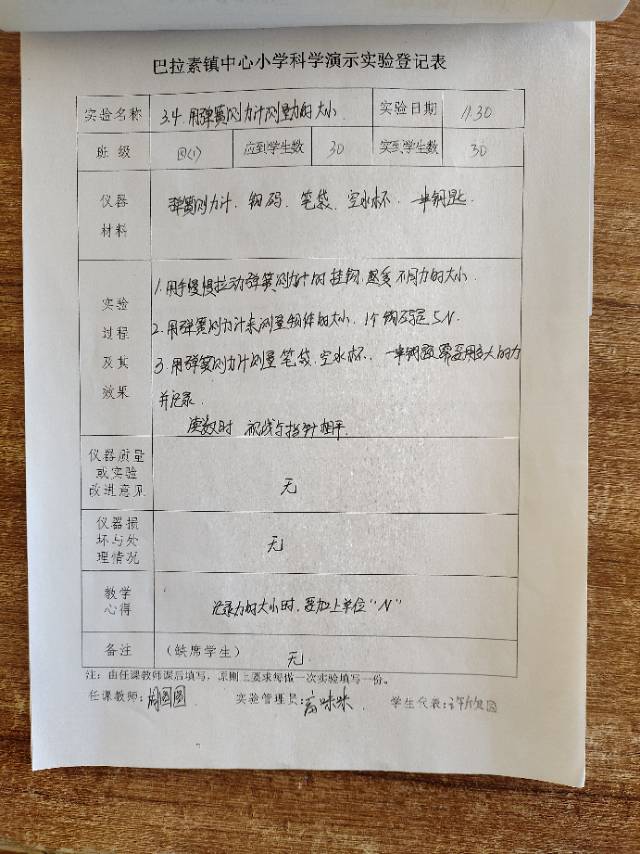 巴拉素镇中心小学科学演示实验登记表
实验名称 3.4 用弹簧测力计测量力的大小 实验日期 11.30
班级 四(1) 应到学生数 30 实到学生数 30
仪器材料 弹簧测力计、钩码、笔袋、空水杯、一串钥匙
实验过程及其效果
1.用手慢慢拉动弹簧测力计的挂钩,感受不同力的大小.
2.用弹簧测力计来测量物体的大小,1个钩码是.5N.
3.用弹簧测力计测量笔袋、空水杯、一串钥匙需要用多大的力
并记录.
读数时 视线与指针相平.
仪器质量或实验改进意见 无
仪器损坏与处理情况 无
教学心得 记录力的大小时,要加上单位“N”
备注 (缺席学生) 无
注:由任课教师课后填写,原则上要求每做一次实验填写一份。
任课教师: 圆圆 实验管理员: 高咪咪 学生代表: